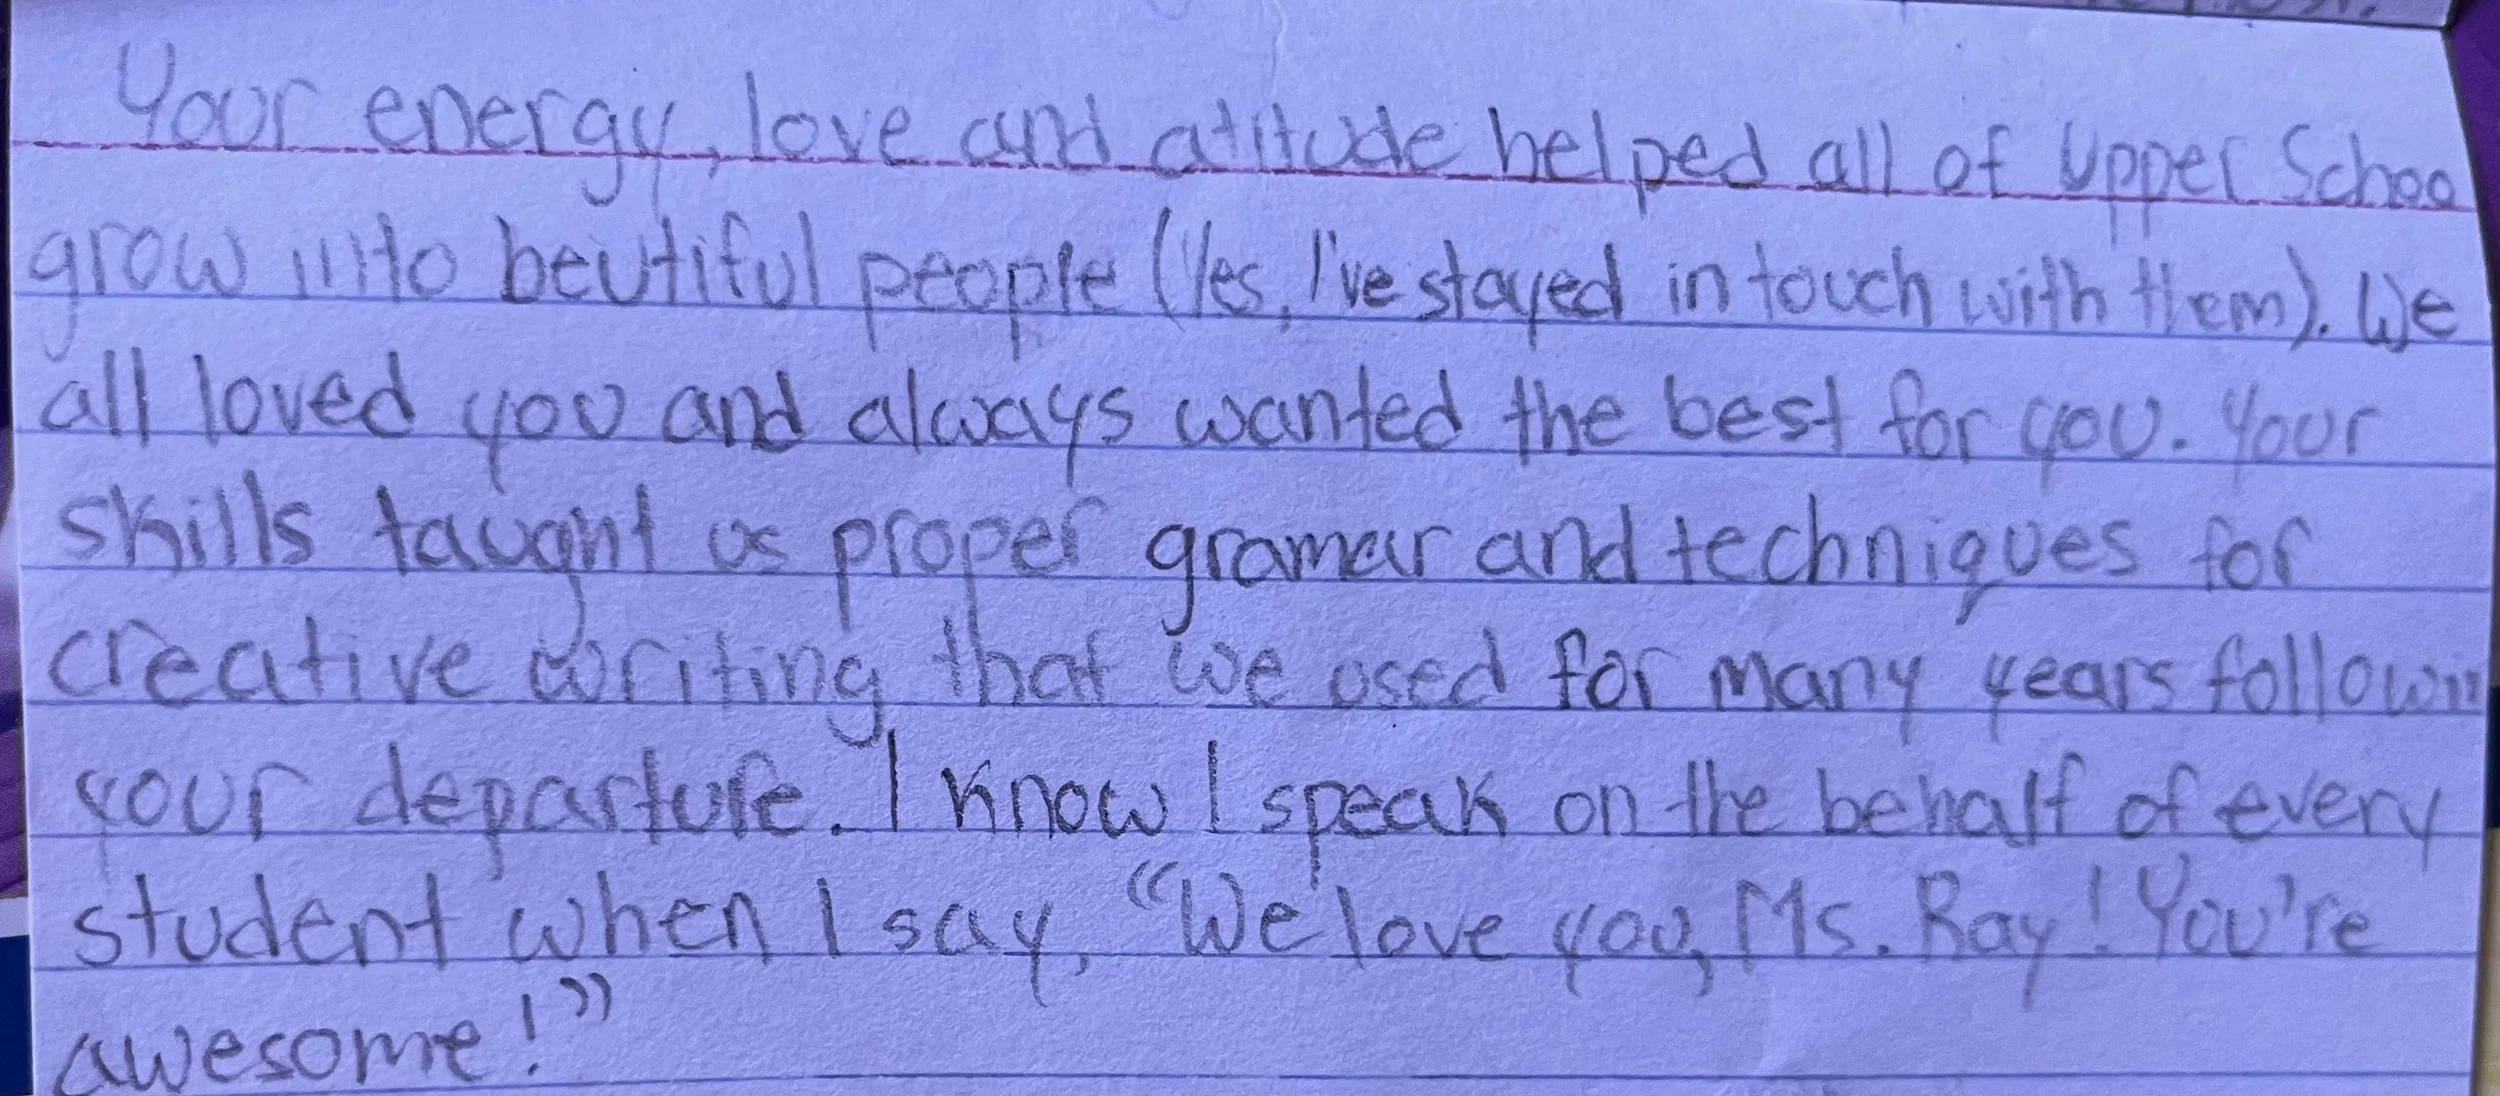 Your energy, love and atitude helped all of Upper Schoo
grow into beutiful people (Yes, I've stayed in touch with them). We
all loved you and always wanted the best for you. Your
skills taught us proper gramar and techniques for
creative writing that we used for many years followin
your departure. I know I speak on the behalf of every
student when I say, "We love you, Ms. Ray! You're
awesome!"